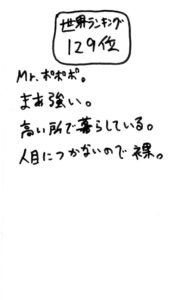 世界ランキング
129位
Mr.ポポポ。
まあ強い。
高い所で暮らしている。
人目につかないので裸。